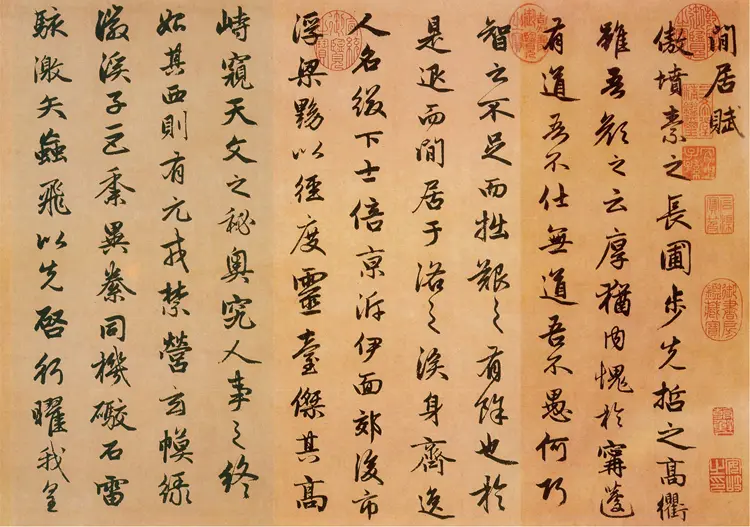 閒居賦
傲墳素之長圃步先哲之高衢
雖吾顏之云厚猶內愧於甯蘧
有道吾不仕無道吾不愚何巧
智之不足而拙艱之有餘也於
是退而閒居于洛之涘身齊逸
人名綴下士倍京泝伊面郊後市
浮梁黝以徑度靈臺傑其高
峙窺天文之秘奧究人事之終
始其西則有元戎禁營玄幙綠
徽溪子巨黍異豢同機礮石雷
駭激矢蝱飛以先啓行曜我皇